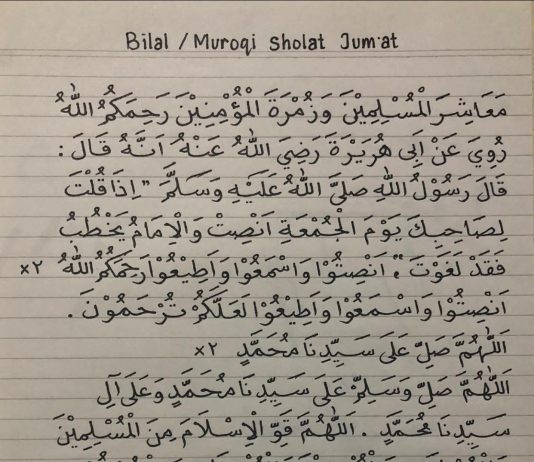 Bilal / Muroqi Sholat Jum'at
مَعَاشِرَ الْمُسْلِمِيْنَ وَزُمْرَةَ الْمُؤْمِنِيْنَ رَحِمَكُمُ اللّٰهُ
رُوِيَ عَنْ اَبِى هُرَيْرَةَ رَضِيَ اللّٰهُ عَنْهُ اَنَّهُ قَالَ :
قَالَ رَسُوْلُ اللّٰهِ صَلَّى اللّٰهُ عَلَيْهِ وَسَلَّمَ " اِذَا قُلْتَ
لِصَاحِبِكَ يَوْمَ الْجُمْعَةِ اَنْصِتْ وَالْاِمَامُ يَخْطُبُ
فَقَدْ لَغَوْتَ " . اَنْصِتُوْا وَاسْمَعُوْا وَاَطِيْعُوْا رَحِمَكُمُ اللّٰهُ ×٢
اَنْصِتُوْا وَاسْمَعُوْا وَاَطِيْعُوْا لَعَلَّكُمْ تُرْحَمُوْنَ .
اَللّٰهُمَّ صَلِّ عَلَى سَيِّدِنَا مُحَمَّدٍ ×٢
اَللّٰهُمَّ صَلِّ وَسَلِّمْ عَلَى سَيِّدِنَا مُحَمَّدٍ وَعَلَى آلِ
سَيِّدِنَا مُحَمَّدٍ . اَللّٰهُمَّ قَوِّ الْاِسْلَامَ مِنَ الْمُسْلِمِيْنَ